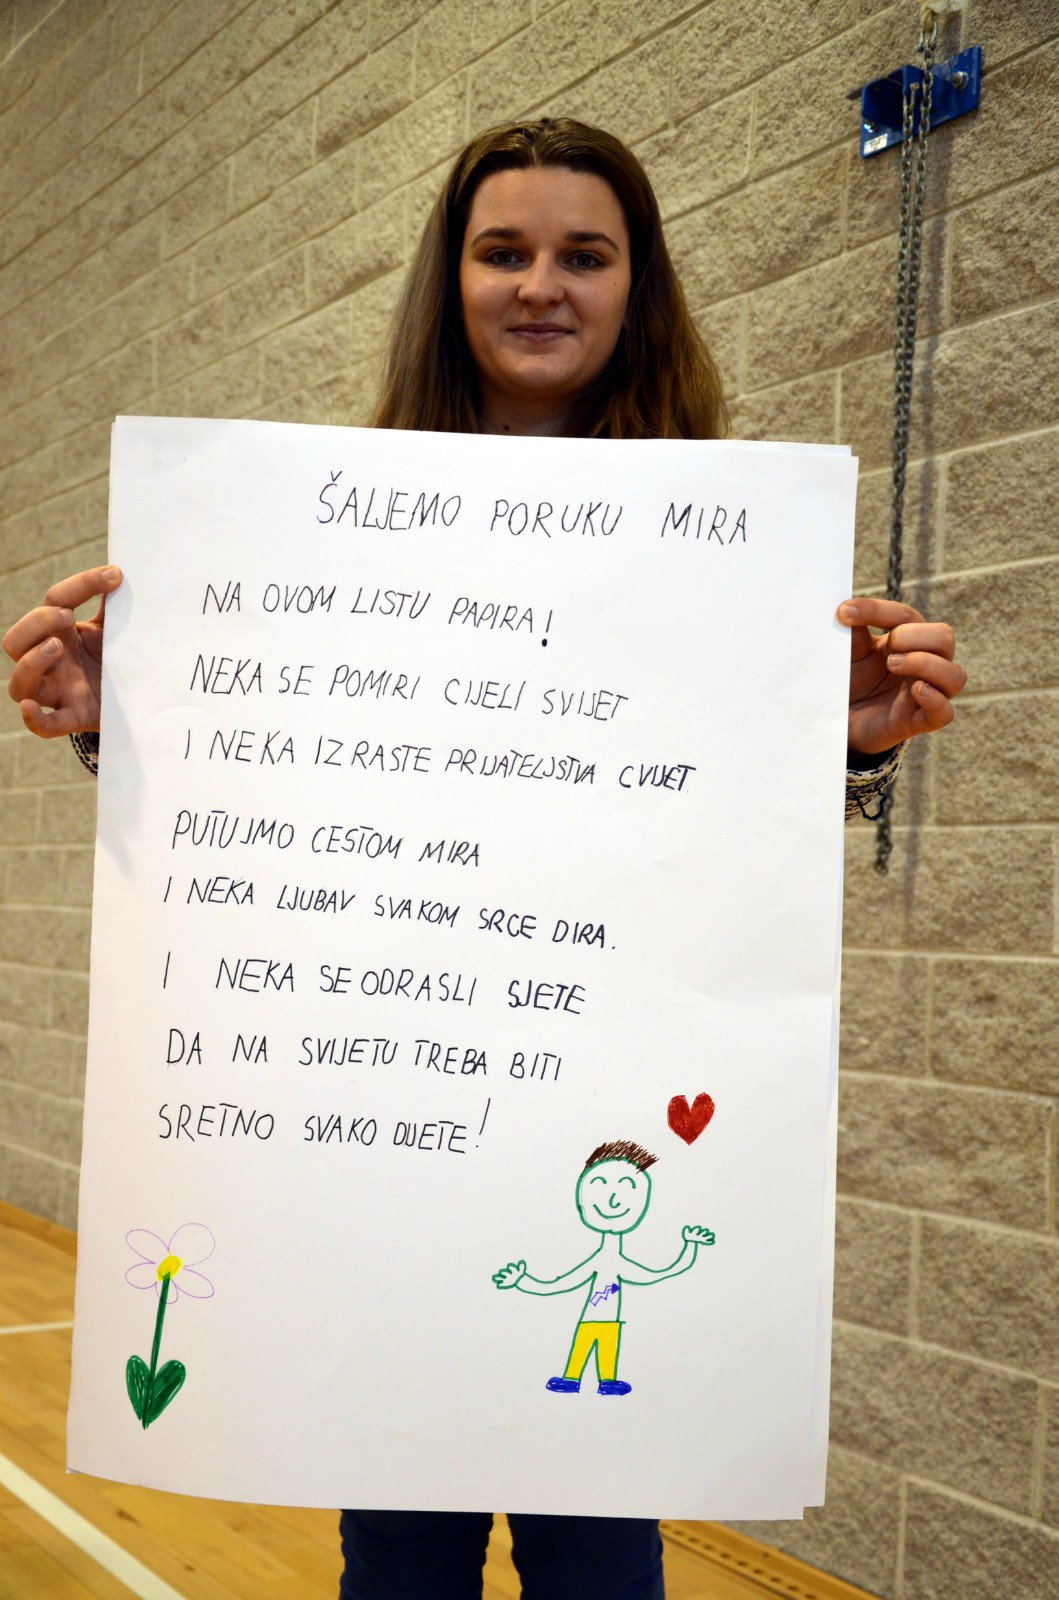 ŠALJEMO PORUKU MIRA
NA OVOM LISTU PAPIRA!
NEKA SE POMIRI CIJELI SVIJET
I NEKA IZRASTE PRIJATELJSTVA CVIJET
PUTUJMO CESTOM MIRA
I NEKA LJUBAV SVAKOM SRCE DIRA.
I NEKA SE ODRASLI SJETE
DA NA SVIJETU TREBA BITI
SRETNO SVAKO DIJETE!